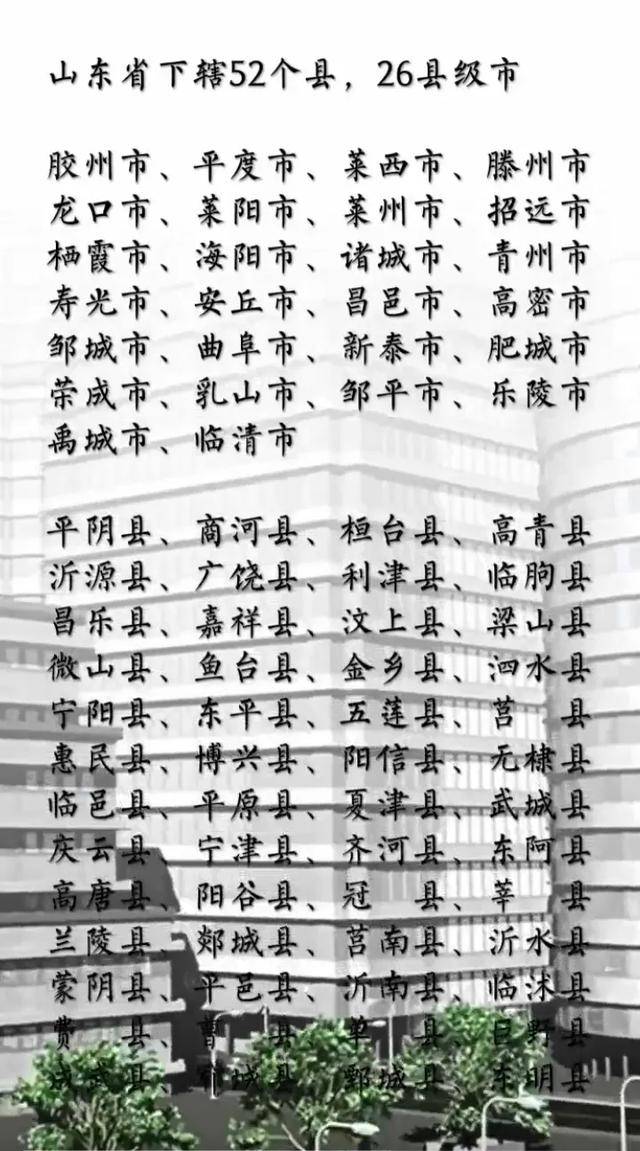 山东省下辖52个县，26县级市
胶州市、平度市、莱西市、滕州市
龙口市、莱阳市、莱州市、招远市
栖霞市、海阳市、诸城市、青州市
寿光市、安丘市、昌邑市、高密市
邹城市、曲阜市、新泰市、肥城市
荣成市、乳山市、邹平市、乐陵市
禹城市、临清市
平阴县、商河县、桓台县、高青县
沂源县、广饶县、利津县、临朐县
昌乐县、嘉祥县、汶上县、梁山县
微山县、鱼台县、金乡县、泗水县
宁阳县、东平县、五莲县、莒　县
惠民县、博兴县、阳信县、无棣县
临邑县、平原县、夏津县、武城县
庆云县、宁津县、齐河县、东阿县
高唐县、阳谷县、冠　县、莘　县
兰陵县、郯城县、莒南县、沂水县
蒙阴县、平邑县、沂南县、临沭县
费　县、曹　县、单　县、巨野县
成武县、郓城县、鄄城县、东明县